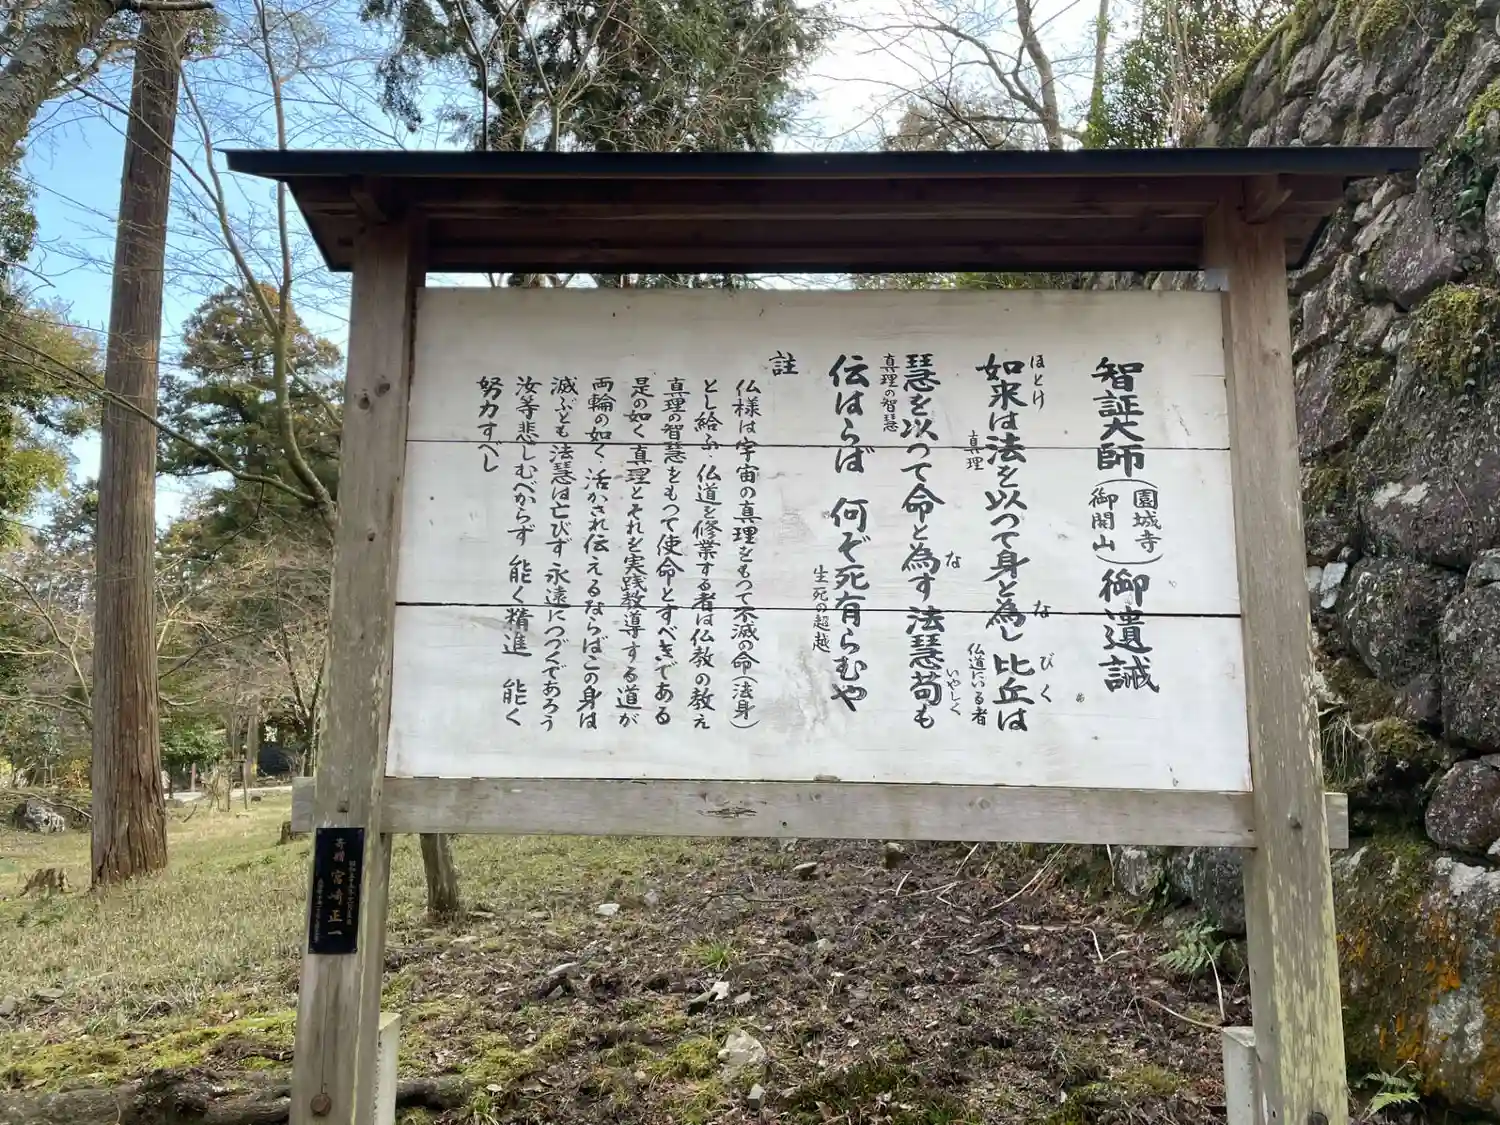 智証大師(園城寺御開山)御遺誡
如来は法を以つて身と為し 比丘は
ほとけ
真理
な
びく
仏道に入る者
慧を以つて命と為す 法慧苟も
真理の智慧
な
いやしく
伝はらば 何ぞ死有らむや
生死の超越
註
仏様は宇宙の真理をもつて不滅の命(法身)
とし給ふ 仏道を修業する者は仏教の教え
真理の智慧をもつて使命とすべきである
是の如く真理とそれを実践教導する道が
両輪の如く 活かされ伝えるならばこの身は
滅ぶとも法慧は亡びず 永遠につづくであろう
汝等悲しむべからず 能く精進 能く
努力すべし
寄贈 宮崎正一